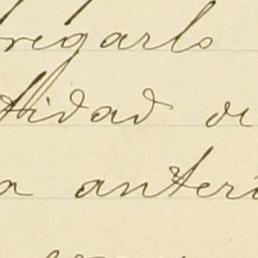 regarlo
tidad de
a anteri